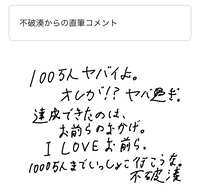 不破湊からの直筆コメント
100万人ヤバイよ。
オレが!?ヤバ過ぎ。
達成できたのは、
お前らのおかげ。
I LOVEお前ら。
1000万人までいっしょに行こうな。
不破湊